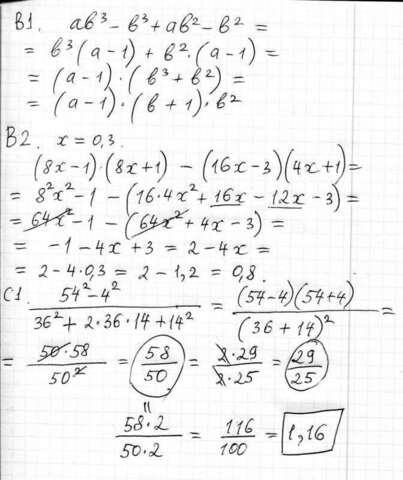 B1. ab³ - b³ + ab² - b² =
= b³(a-1) + b²·(a-1) =
= (a-1)·(b³+b²) =
= (a-1)·(b+1)·b²
B2. x = 0,3.
(8x-1)·(8x+1) - (16x-3)(4x+1) =
= 8²x² - 1 - (16·4x² + 16x - 12x - 3) =
= 64x² - 1 - (64x² + 4x - 3) =
= -1 - 4x + 3 = 2 - 4x =
= 2 - 4·0,3 = 2 - 1,2 = 0,8.
C1. (54² - 4²)/(36² + 2·36·14 + 14²) = ((54-4)(54+4))/((36+14)²) =
= (50·58)/(50²) = 58/50 = (2·29)/(2·25) = 29/25
=
(58·2)/(50·2) = 116/100 = 1,16